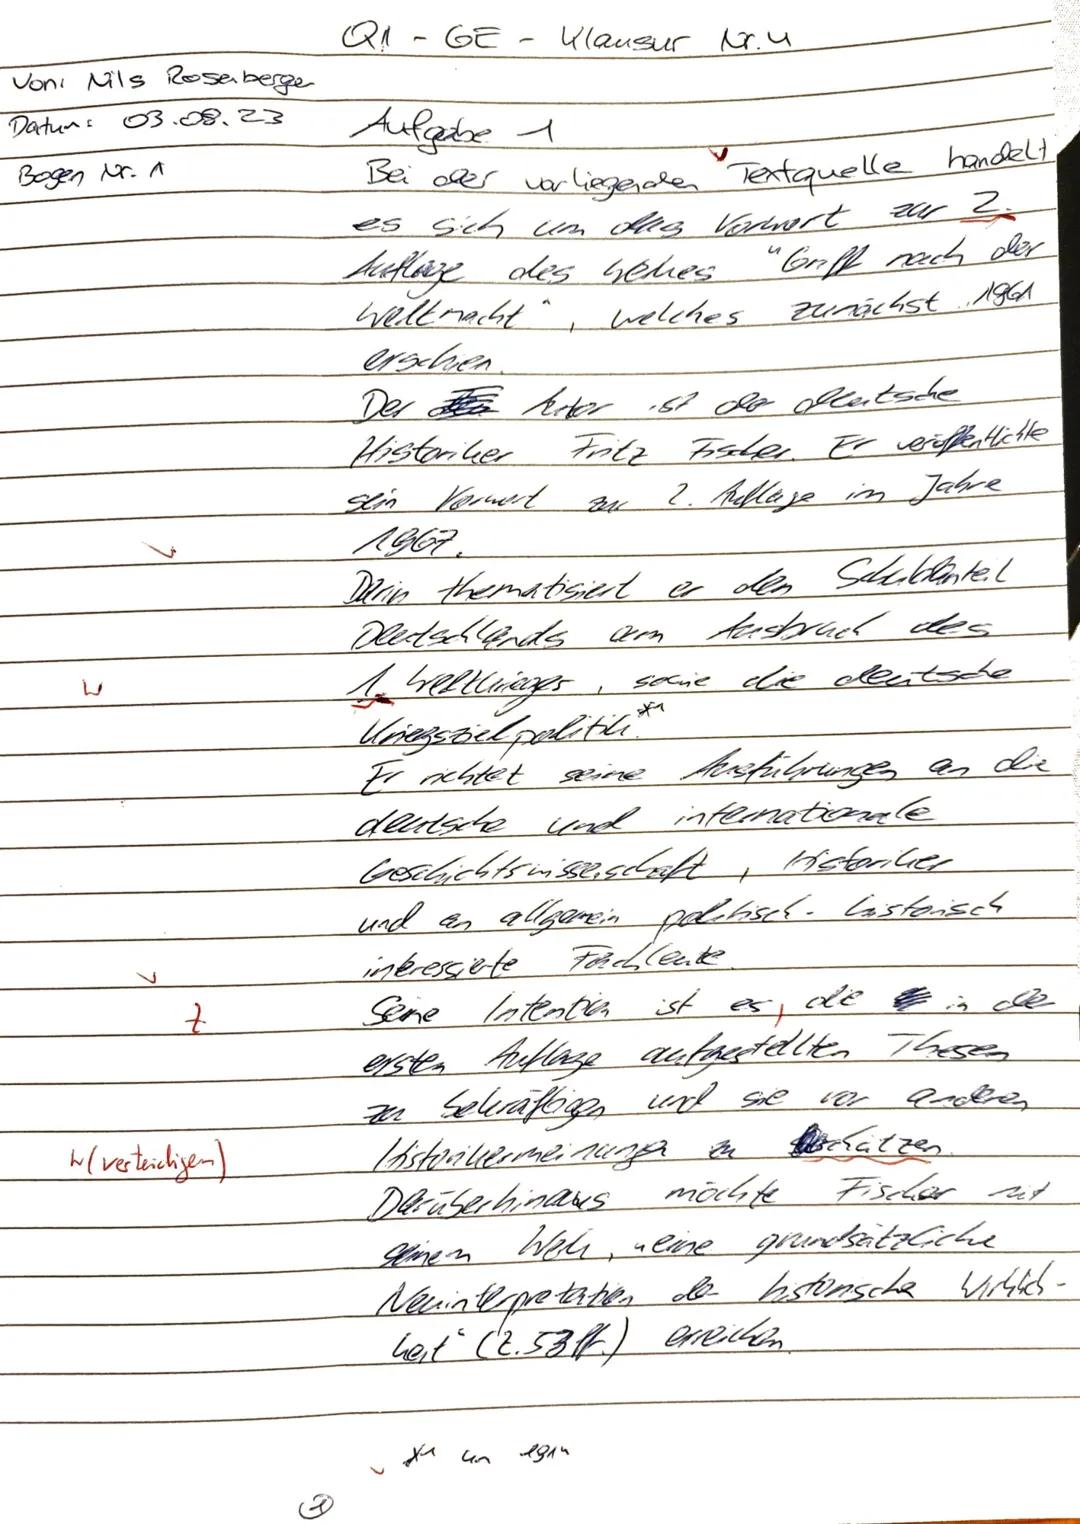 Q1 - GE - Klausur Nr. 4
Von: Nils Rosenberger
Datum: 03.08.23
Aufgabe 1
Bogen Nr. 1
Bei der vorliegenden Textquelle handelt
es sich um das Vorwort zur 2.
Auflage des Werkes "Griff nach der
Weltmacht", welches zunächst 1961
erschien.
Der Autor ist der deutsche
Historiker Fritz Fischer. Er veröffentlichte
sein Vorwort zur 2. Auflage im Jahre
1967.
Darin thematisiert er den Schuldanteil
Deutschlands am Ausbruch des
W
1. Weltkrieges, sowie die deutsche
Kriegszielpolitik.*1
Er richtet seine Ausführungen an die
deutsche und internationale
Geschichtswissenschaft, Historiker
und an allgemein politisch-historisch
interessierte Fachleute.
Z
Seine Intention ist es, die in der
ersten Auflage aufgestellten Thesen
zu bekräftigen und sie vor anderen
W (verteidigen)
Historikermeinungen zu schützen.
Darüberhinaus möchte Fischer mit
seinem Werk, "eine grundsätzliche
Neuinterpretation der historische Wirklich-
keit" (Z. 53 ff.) erreichen.
*1 um